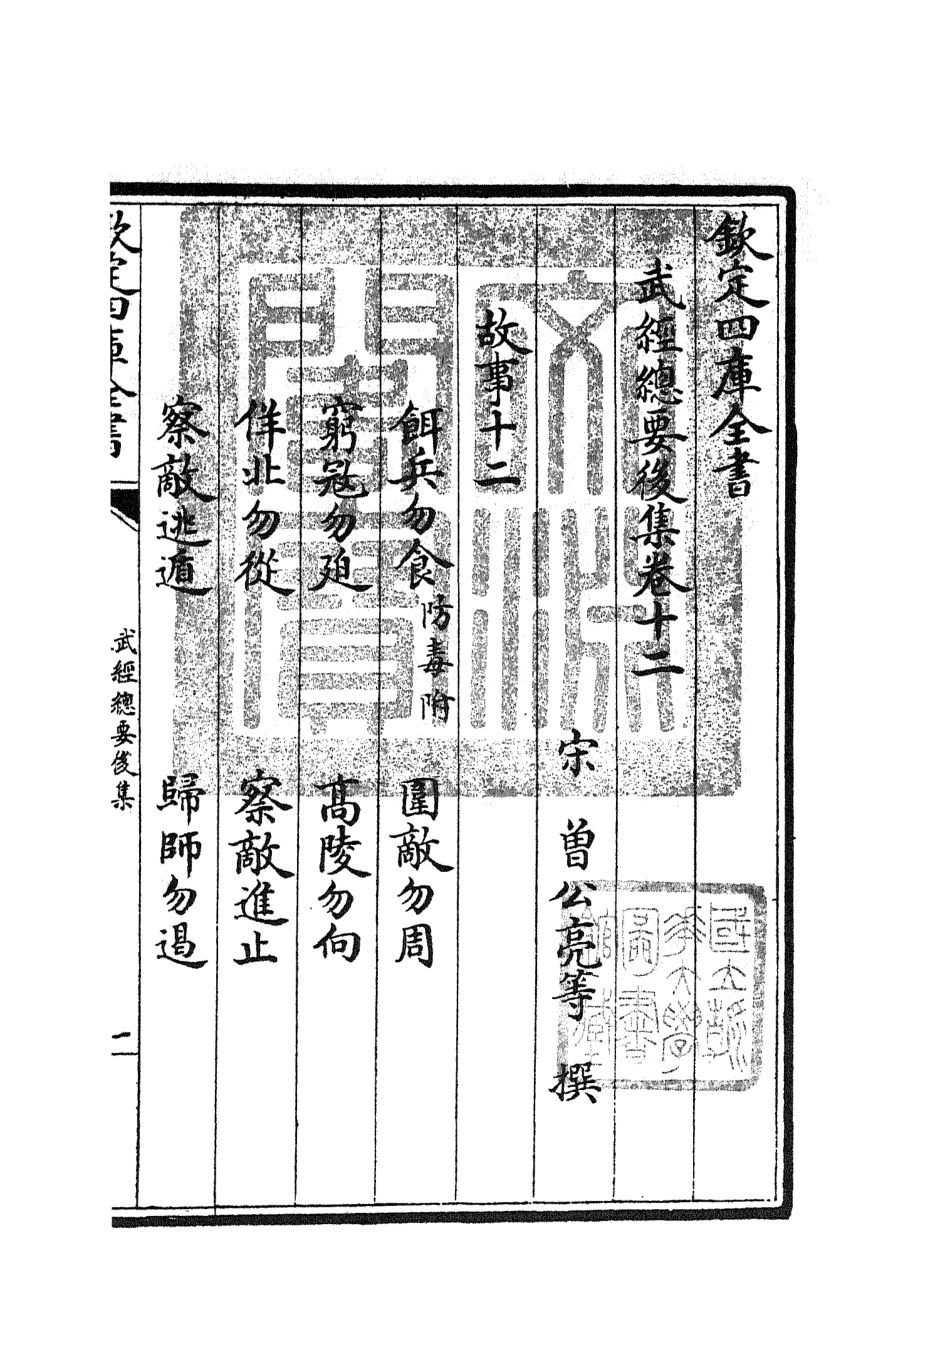 欽定四庫全書
武經總要後集卷十二
宋 曽公亮等 撰
故事十二
餌兵勿食 防毒附 圍敵勿周
窮冦勿廹 髙陵勿向
佯北勿從 察敵進止
察敵逃遁 歸師勿遏
欽定四庫全書
武經總要後集
一
文淵閣寳
國立浙江大學圖書館藏